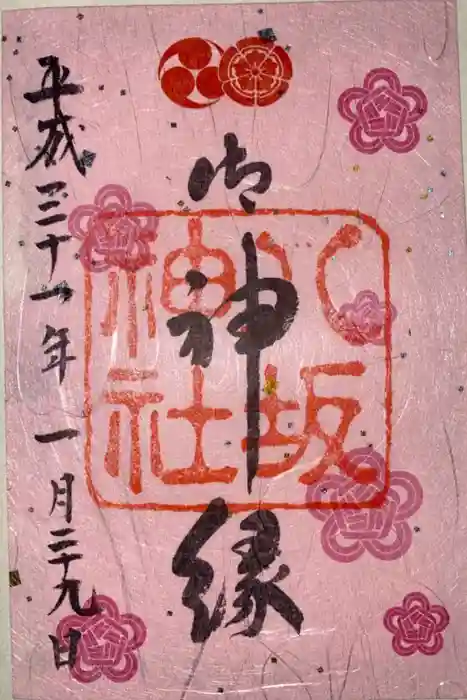 御神縁
八坂神社
平成三十一年一月二十九日